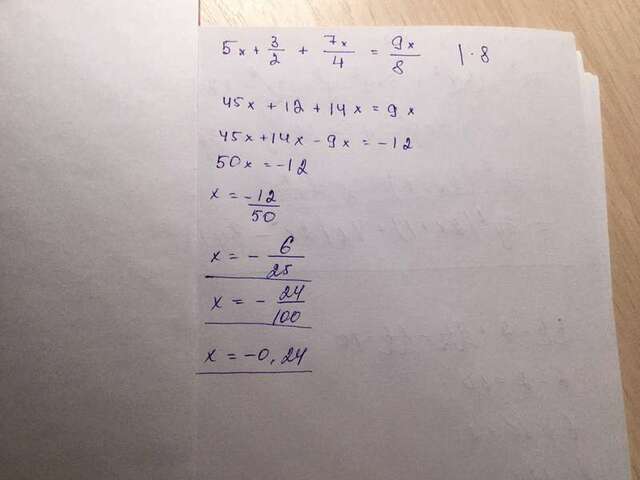 5x + 3/2 + 7x/4 = 9x/8 | · 8
45x + 12 + 14x = 9x
45x + 14x - 9x = -12
50x = -12
x = -12/50
x = - 6/25
x = - 24/100
x = -0,24